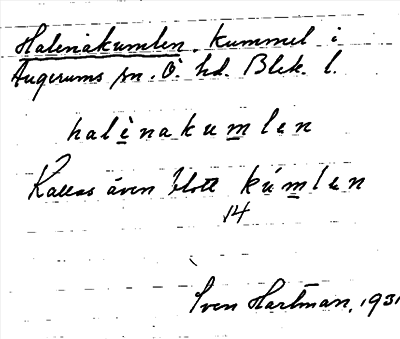 Halenakumlen. kummel i
Augerums sn. Ö. hd. Blek. l.
halènakumlen
Kallas även blott kúmlen
14
Sven Hartman, 1931